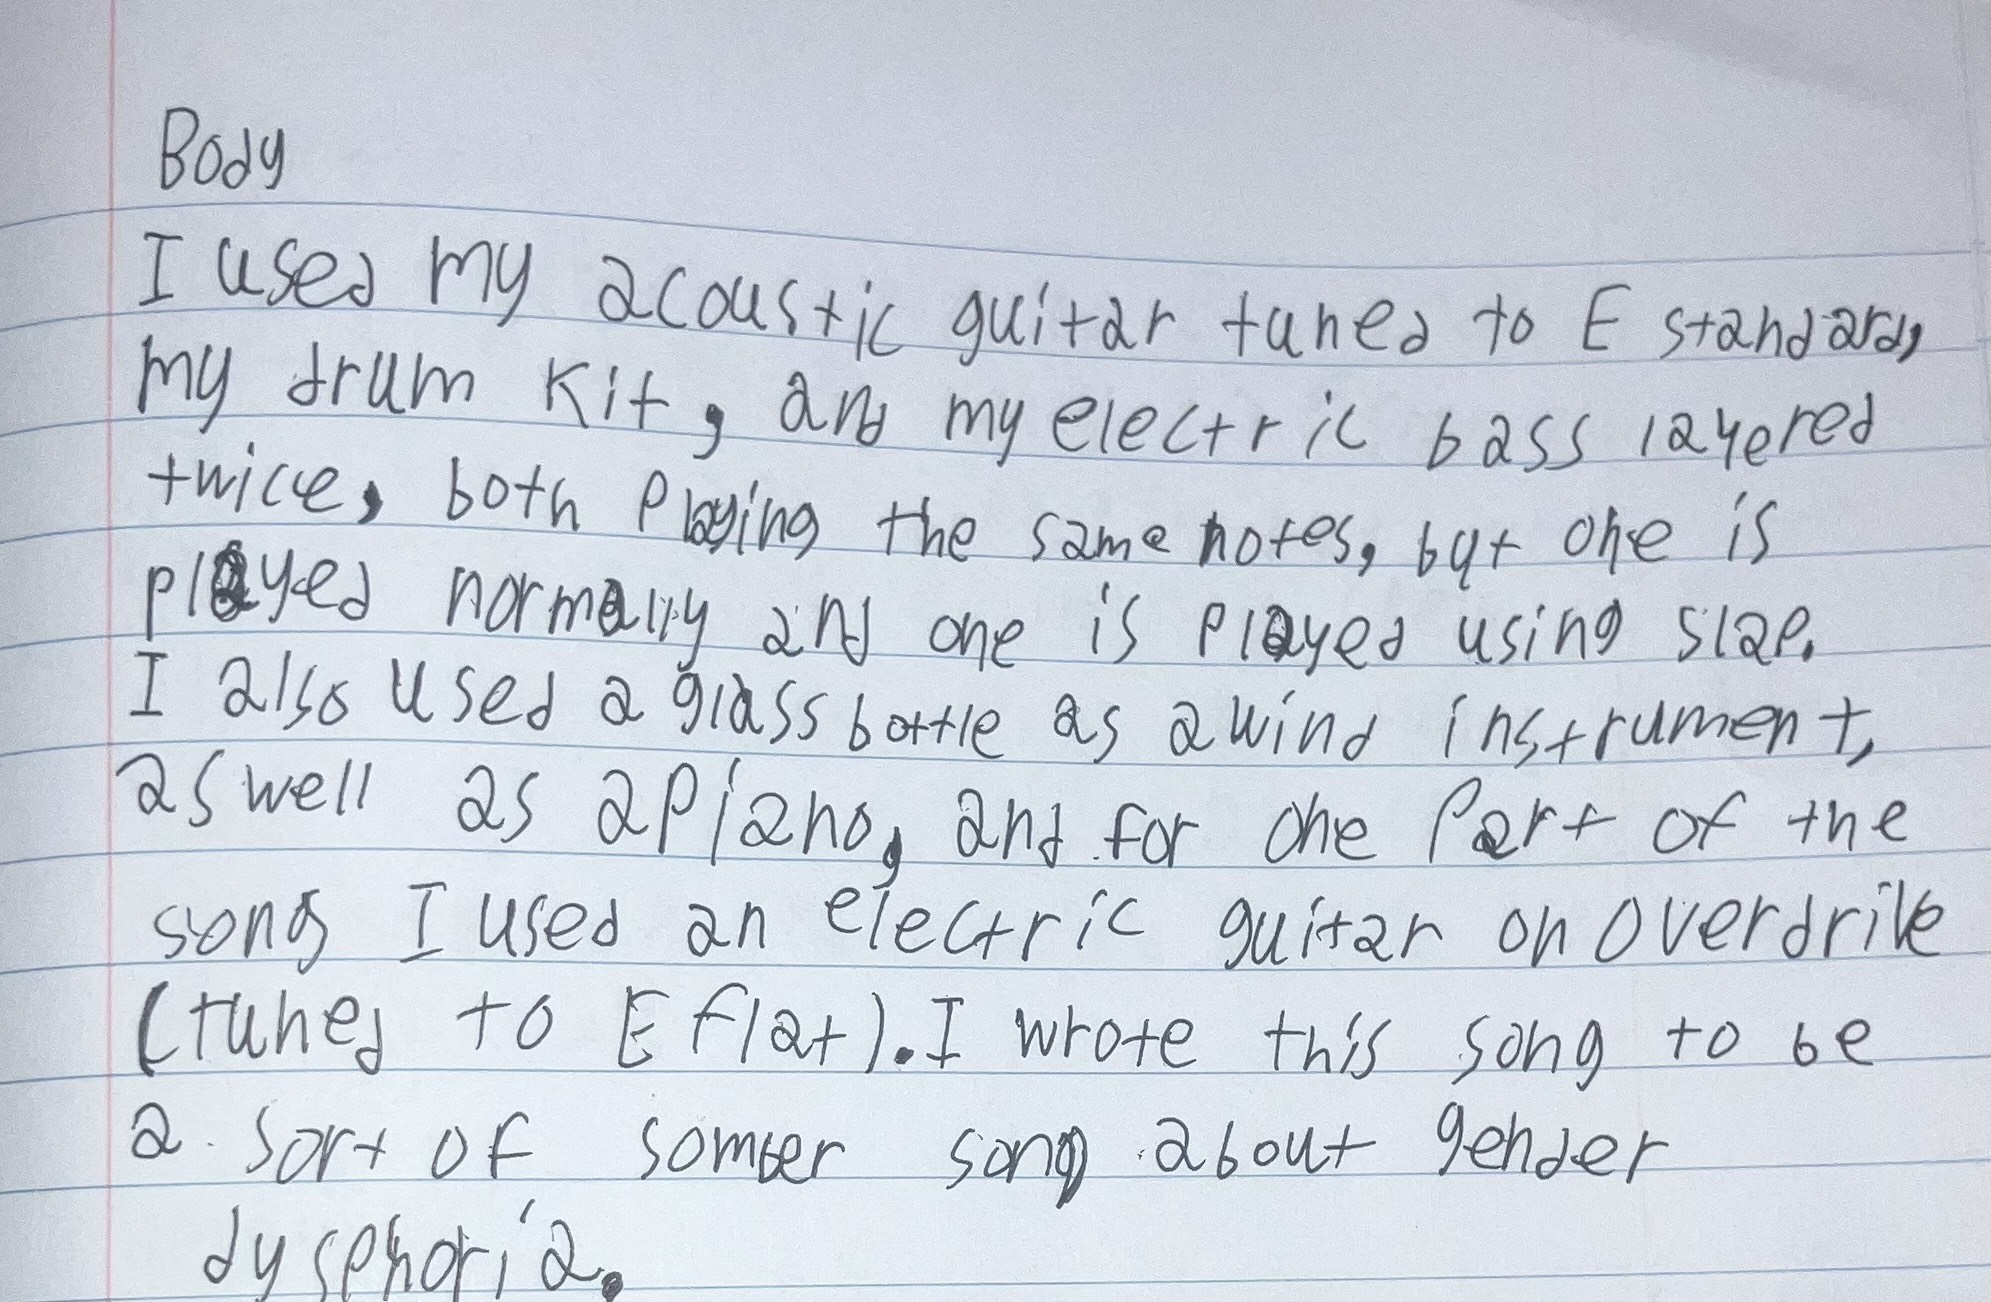 Body
I used my acoustic guitar tuned to E standard,
my drum kit, and my electric bass layered
twice, both playing the same notes, but one is
played normally and one is played using slap.
I also used a glass bottle as a wind instrument,
as well as a piano, and for one part of the
song I used an electric guitar on overdrive
(tuned to E flat). I wrote this song to be
a sort of somber song about gender
dysphoria.